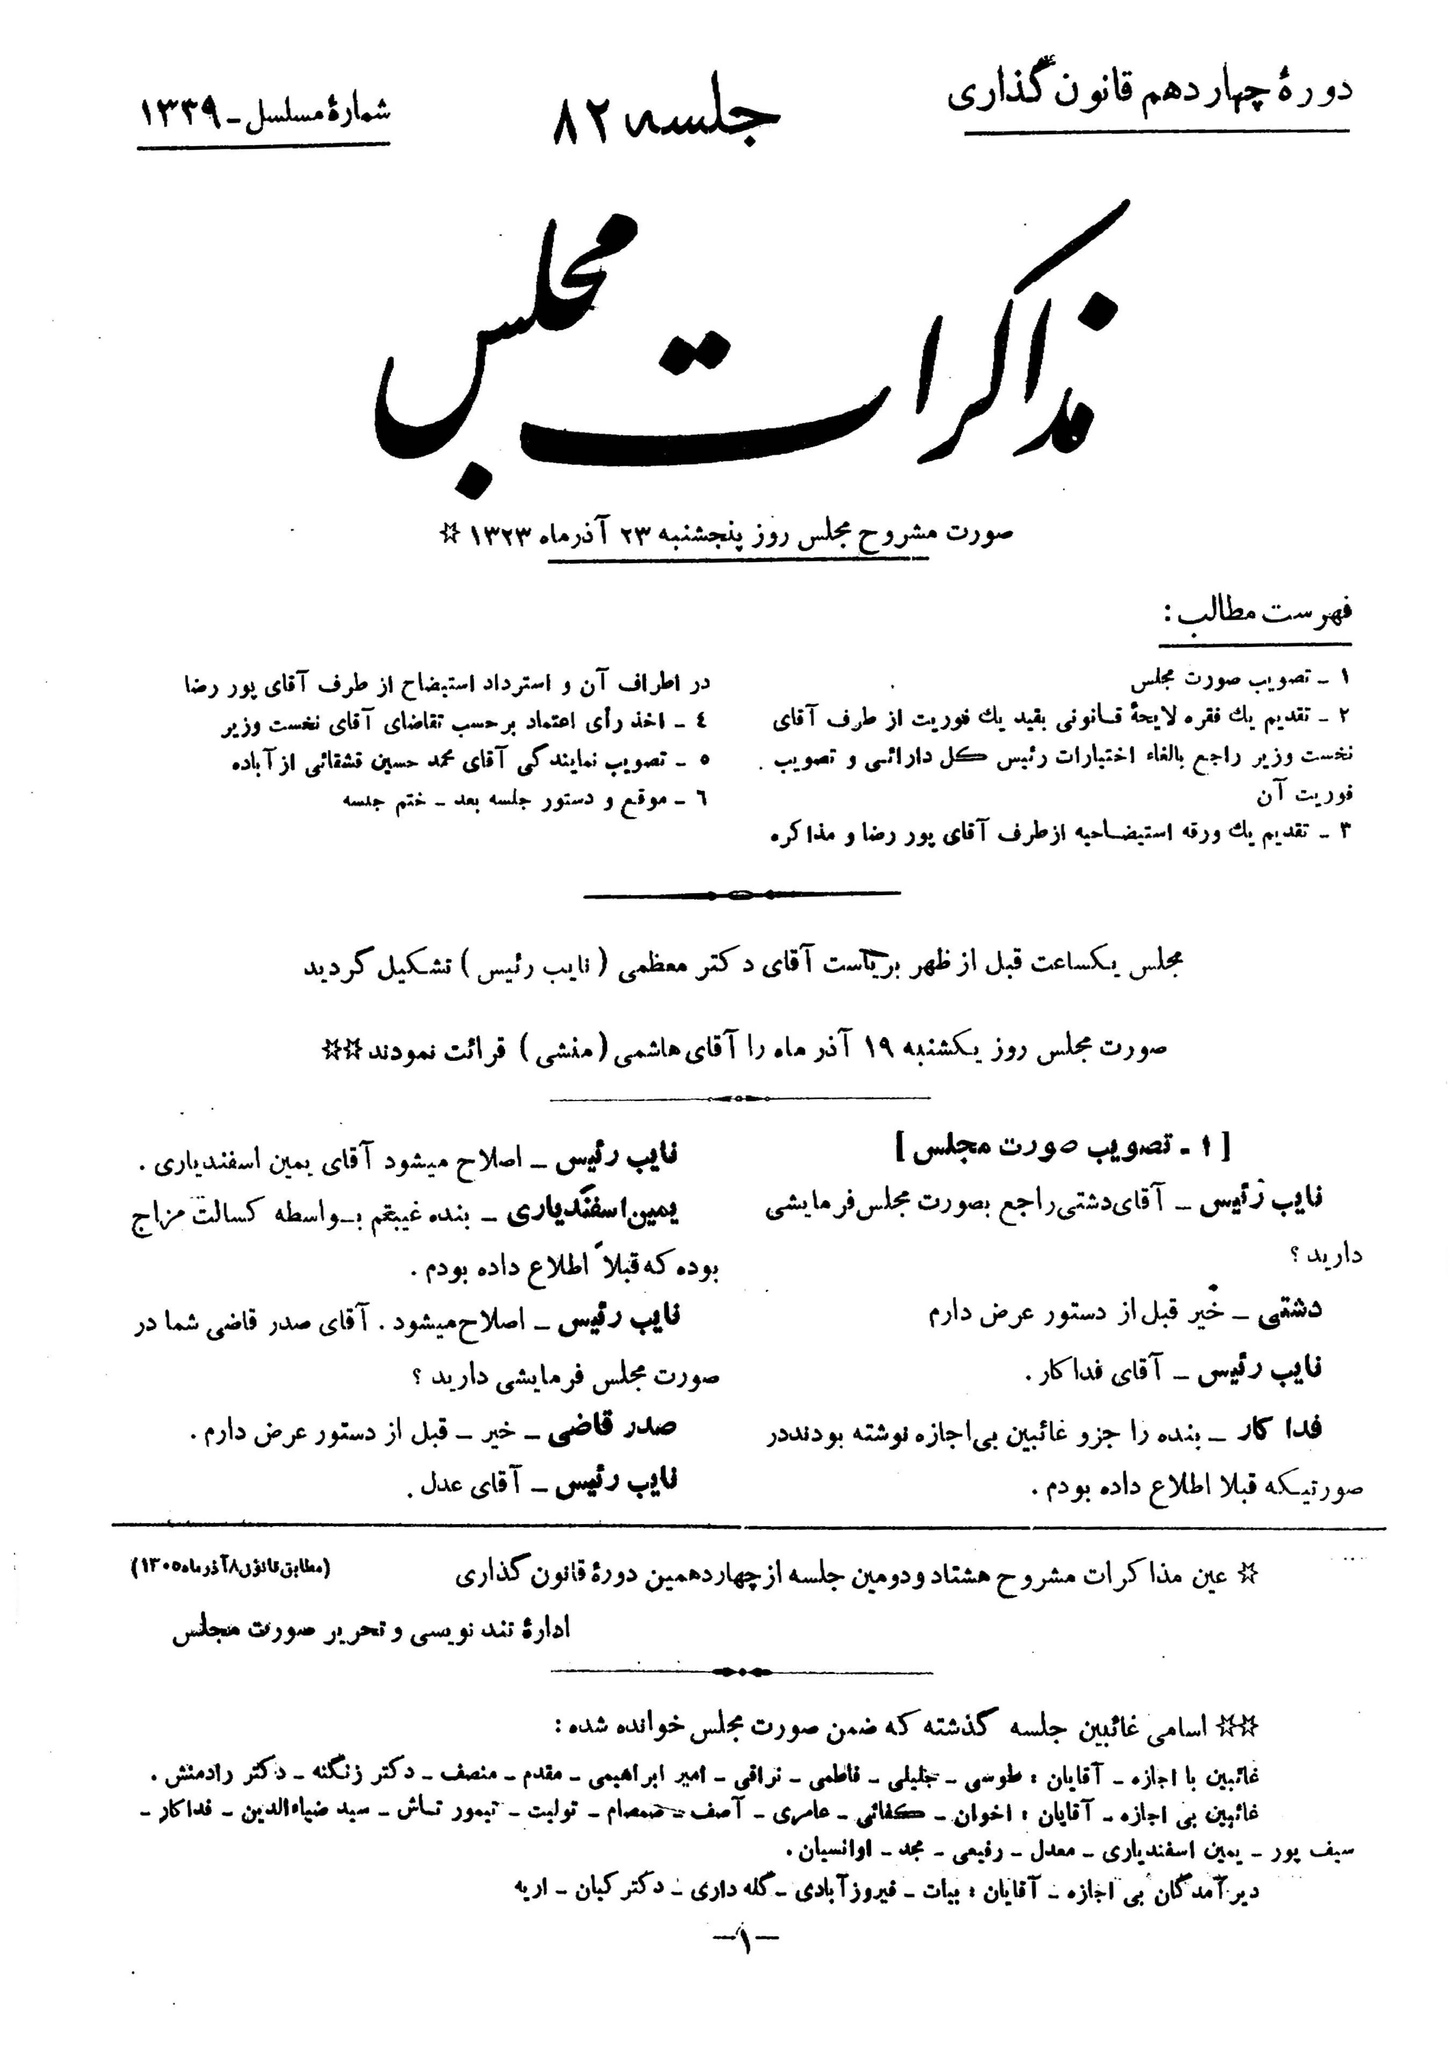 دورهٔ چهاردهم قانون گذاری
جلسه ۸۲
شمارهٔ مسلسل - ۱۳۳۹
مذاکرات مجلس
صورت مشروح مجلس روز پنجشنبه ۲۳ آذر ماه ۱۳۲۳ ☆
فهرست مطالب :
۱ - تصویب صورت مجلس
۲ - تقدیم یك فقره لایحهٔ قانونی بقید یك فوریت از طرف آقای
نخست وزیر راجع بالغاء اختیارات رئیس کل دارائی و تصویب
فوریت آن
۳ - تقدیم یك ورقه استیضاحیه از طرف آقای پور رضا و مذاکره
در اطراف آن و استرداد استیضاح از طرف آقای پور رضا
٤ - اخذ رأی اعتماد بر حسب تقاضای آقای نخست وزیر
۵ - تصویب نمایندگی آقای محمد حسین قشقائی از آباده
٦ - موقع و دستور جلسه بعد - ختم جلسه
مجلس یکساعت قبل از ظهر بریاست آقای دکتر معظمی ( نایب رئیس ) تشکیل گردید
صورت مجلس روز یکشنبه ۱۹ آذر ماه را آقای هاشمی ( منشی ) قرائت نمودند ☆☆
[ ۱ - تصویب صورت مجلس ]
نایب رئیس - آقای دشتی راجع بصورت مجلس فرمایشی
دارید ؟
دشتی - خیر قبل از دستور عرض دارم
نایب رئیس - آقای فداکار .
فداکار - بنده را جزو غائبین بی اجازه نوشته بودند در
صورتیکه قبلا اطلاع داده بودم .
نایب رئیس - اصلاح میشود آقای یمین اسفندیاری .
یمین اسفندیاری - بنده غیبتم بواسطه کسالت مزاج
بوده که قبلاً اطلاع داده بودم .
نایب رئیس - اصلاح میشود . آقای صدر قاضی شما در
صورت مجلس فرمایشی دارید ؟
صدر قاضی - خیر - قبل از دستور عرض دارم .
نایب رئیس - آقای عدل .
☆ عین مذاکرات مشروح هشتاد و دومین جلسه از چهاردهمین دورهٔ قانون گذاری (مطابق قانون ۸ آذر ماه ۱۳۰۵)
ادارهٔ تند نویسی و تحریر صورت مجلس
☆☆ اسامی غائبین جلسه گذشته که ضمن صورت مجلس خوانده شده :
غائبین با اجازه - آقایان : طوسی - جلیلی - فاطمی - نراقی - امیر ابراهیمی - مقدم - منصف - دکتر زنگنه - دکتر رادمنش .
غائبین بی اجازه - آقایان : اخوان - کفائی - عامری - آصف - صمصام - تولیت - تیمور تاش - سید ضیاءالدین - فداکار -
سیف پور - یمین اسفندیاری - معدل - رفیعی - مجد - اوانسیان .
دیر آمدگان بی اجازه - آقایان : بیات - فیروز آبادی - گله داری - دکتر کیان - اریه
-۱-